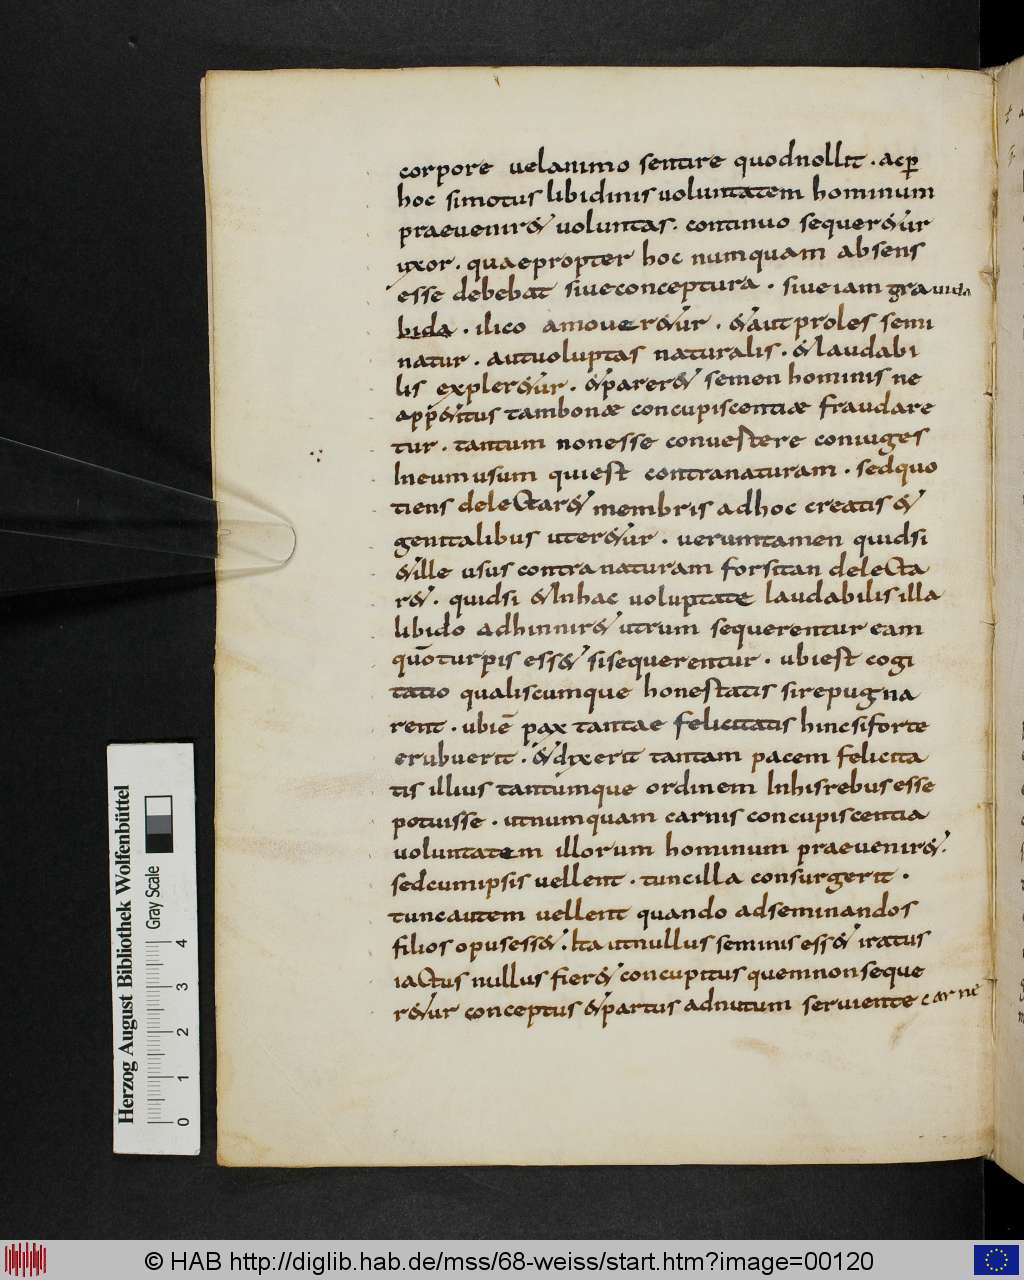 corpore uelanimo sentire quodnollit . acꝑ
hoc simotus libidinis uoluntatem hominum
praeuenir& uoluntas . continuo sequer&ur
uxor . quaepropter hoc numquam absens
esse debebat siueconceptura . siueiam grauida
bida . ilico amouer&ur . &aut proles semi
natur . autuoluptas naturalis . &laudabi
lis expler&ur . &parer& semen hominis ne
app&itus tambonæ concupiscentiæ fraudare
tur . tantum nonesse conuestere coniuges
Ineumusum quiest contranaturam . sedquo
tiens delectar& membris adhoc creatis &
genitalibus uter&ur . uerumtamen quidsi
&ille usus contranaturam forsitan delecta
r& . quidsi &Inhac uoluptate laudabilisilla
libido adhinnir& utrum sequerentur eam
quōturpis ess& sisequerentur . ubiest cogi
tatio qualiscumque honestatis sirepugna
rent . ubiē pax tantae felicitatis hincsiforte
erubuerit . &dixerit tantam pacem felicita
tis illius tantumque ordinem Inhisrebus esse
potuisse . utnumquam carnis concupiscentia
uoluntatem illorum hominum praeuenir& .
sedcumipsis uellent . tuncilla consurgerit .
tuncautem uellent quando adseminandos
filios opusess& . Ita utnullus seminis ess& iratus
iactus nullus fier& concupitus quemnonseque
r&ur conceptus &partus adnutum seruiente carne
Herzog August Bibliothek Wolfenbüttel
Gray Scale
0 1 2 3 4
© HAB http://diglib.hab.de/mss/68-weiss/start.htm?image=00120